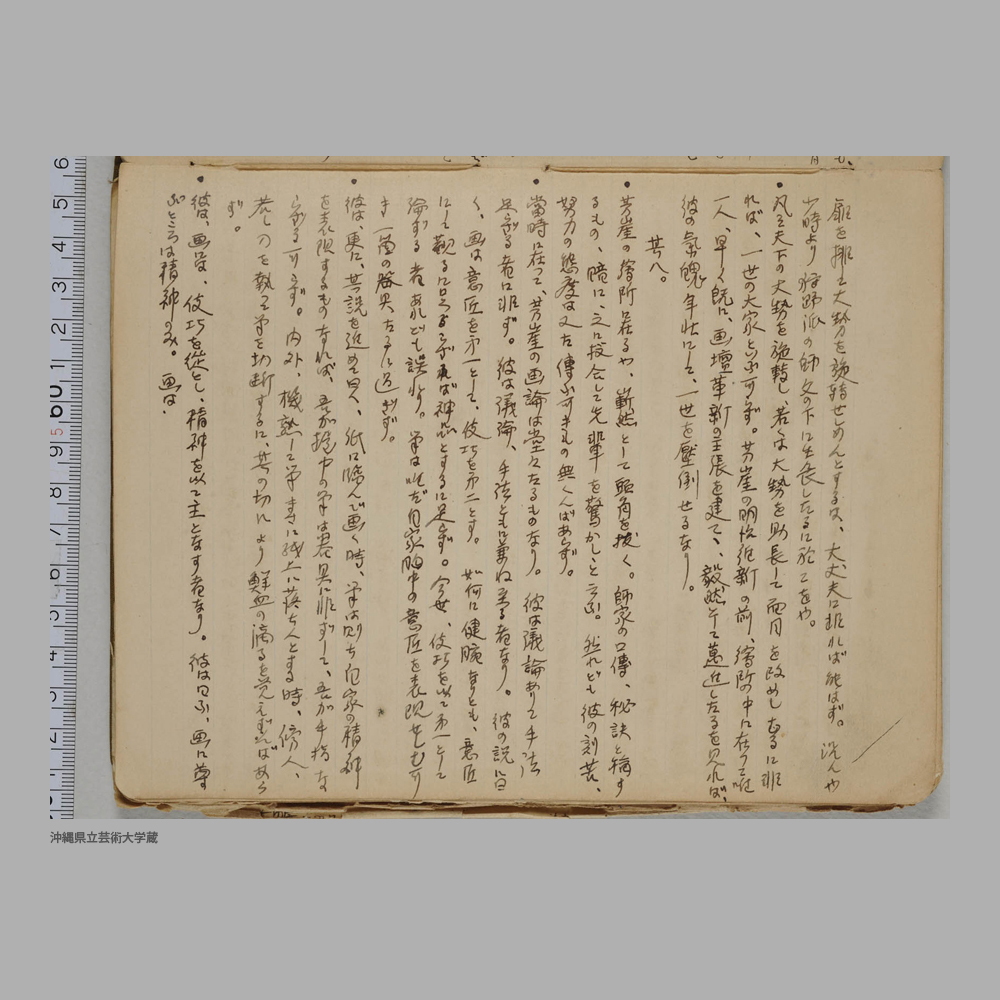 扉を排して大勢を旋轉せしめんとするは、大丈夫に非れば能はず。況んや
少時より狩野派の師父の下に生長したるに於てをや。
凡そ天下の大勢を旋轉し、若は大勢を助長して面目を改めしむるに非
れば、一世の大家といふ可らず。芳崖の明治維新の前、繪所の中に在つて唯
一人、早く既に、画壇革新の主張を建て、毅然として邁進したるを見れば、
彼の氣魄、年壮にして、一世を壓倒せるなり。
其八。
芳崖の繪所に在るや、嶄然として頭角を抜く。師家の口傳、秘訣と稱す
るもの、暗に之に投合して先輩を驚かしと云ふ。然れども彼の刻苦、
努力の態度は又た傳ふ可きもの無くんばあらず。
當時に在つて、芳崖の画論は堂々たるものなり。彼は議論ありて手法
足らざる者に非ず。彼は議論、手法ともに兼ね至る者なり。彼の説に曰
く、画は意匠を第一として、伎巧を第二とす。如何に健腕なりとも、意匠
にして観るに足らざれば神品とするに足らず。今世、伎巧を以て第一として
論ずる者あれども誤れり。筆は唯だ自家胸中の意匠を表現せしむ可
き一箇の器具たるに過ぎず。
彼は、更に其説を進めて曰く、紙に臨んで画く時、筆は則ち自家の精神
を表現するものなれば、吾が握中の筆は器具に非ずして、吾が手指な
らざる可らず。内外、機熟して筆まさに紙上に落ちんとする時、傍人、
若し刀を執て筆を切断するに、其の切れより鮮血の滴るを覚えずんばあら
ず。
彼は、画は、伎巧を従とし、精神を以て主となす者なり。彼は曰ふ、画に尊
ぶところは精神のみ。画は、
沖縄県立芸術大学蔵